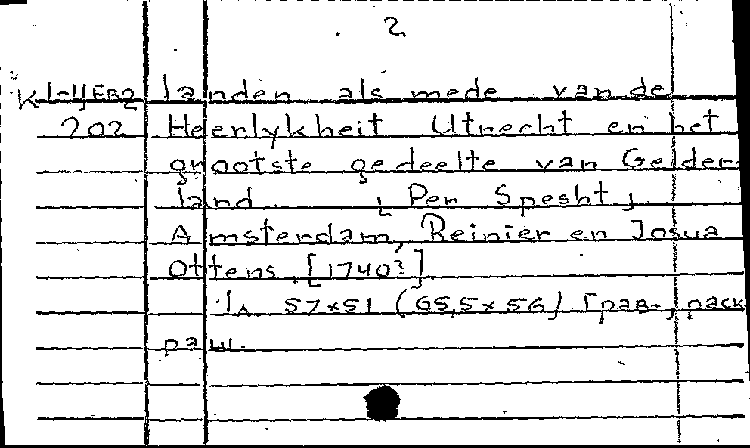 2
landen als mede van de
202 Heerlykheit Utrecht en het
grootste gedeelte van Gelder-
land [Per Spesht]
Amsterdam, Reinier en Josua
Ottens [1740?].
1л. 57×51 (65,5×56) грав., раск
раш.